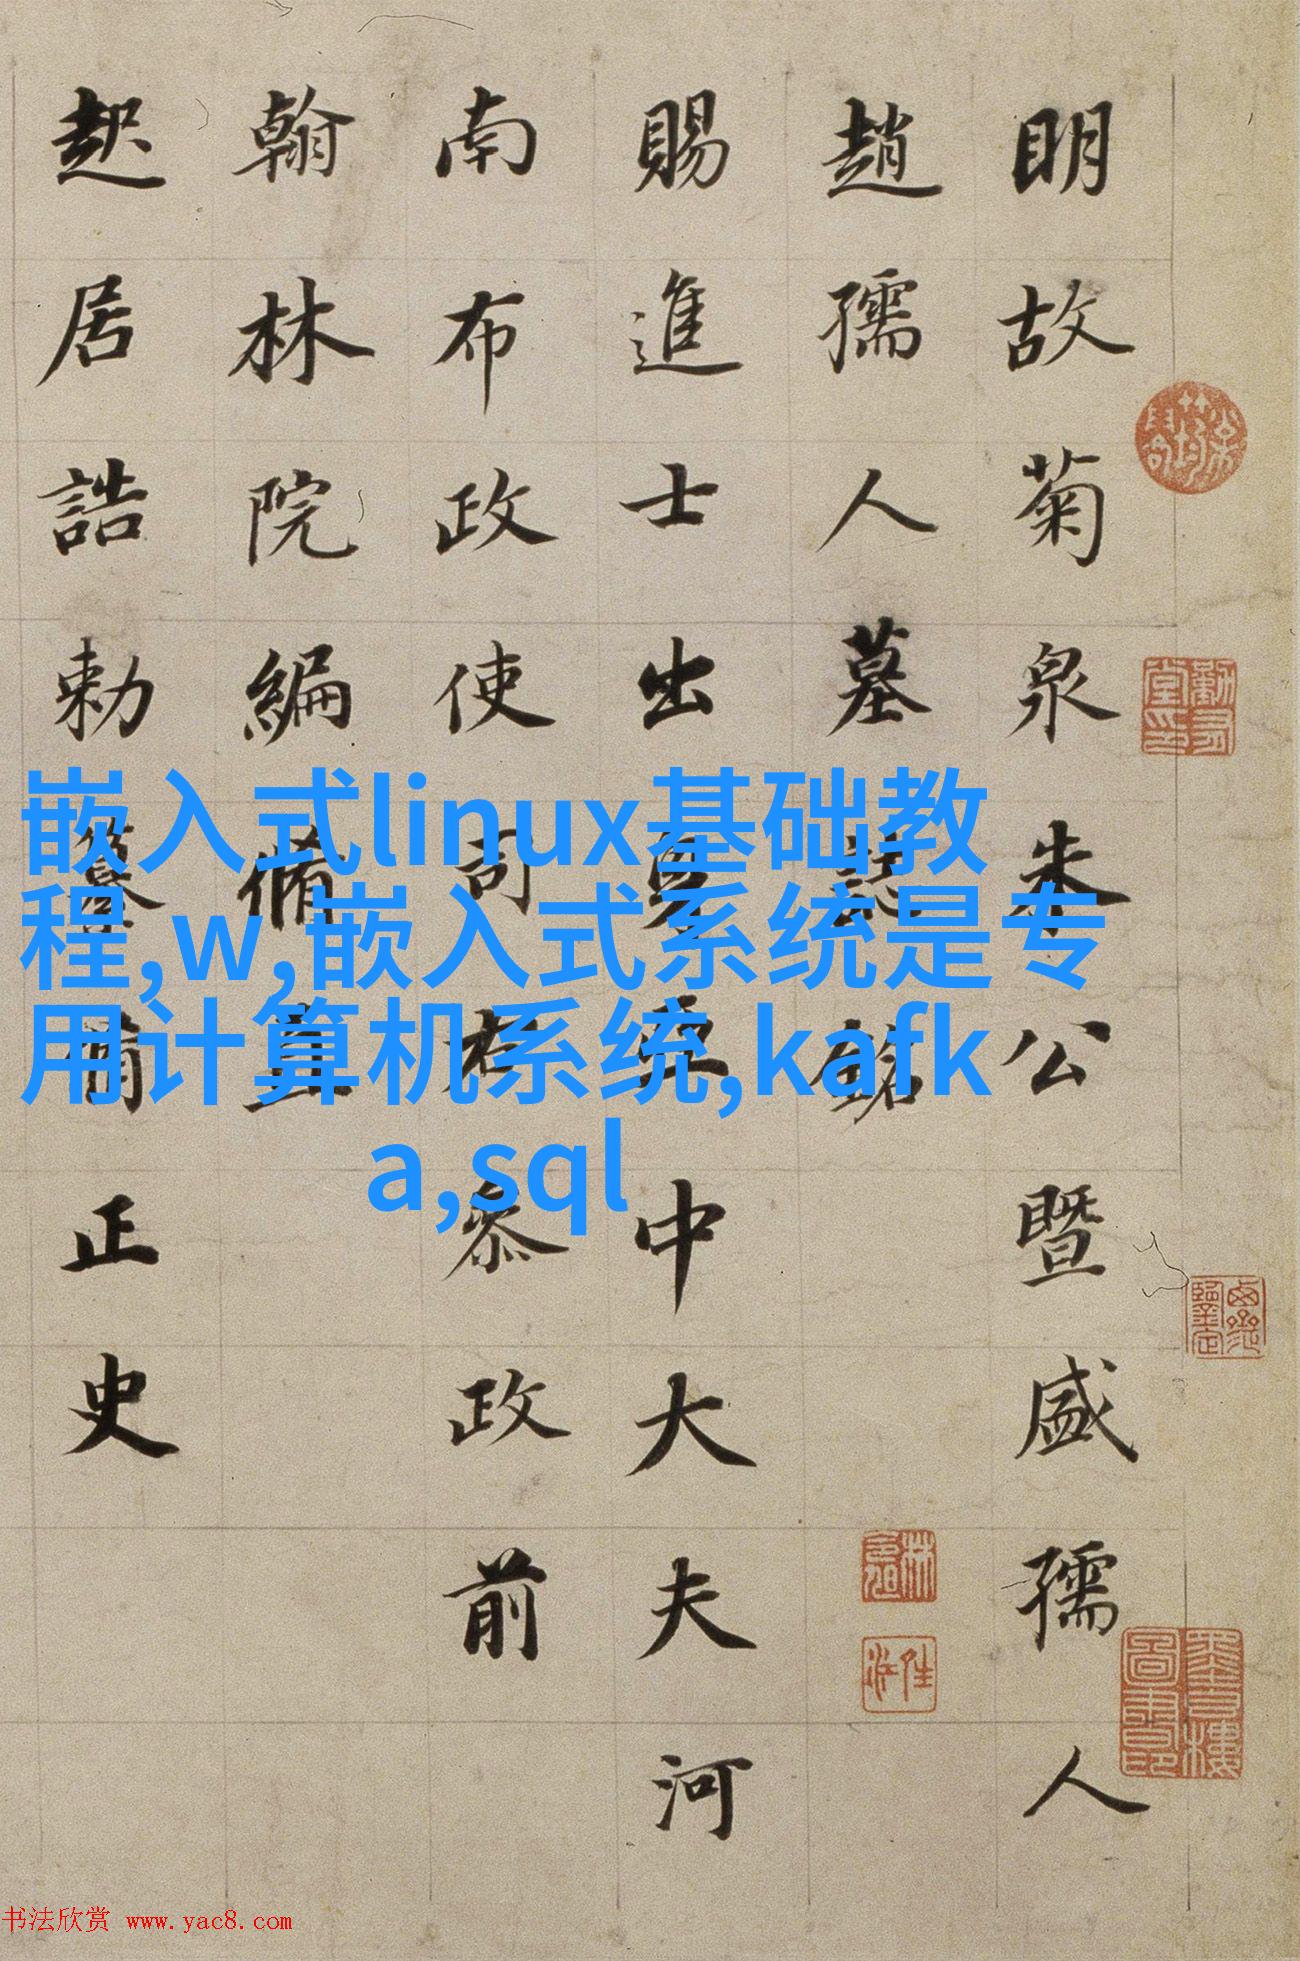 明故菊泉朱公暨盛孺人
趙孺人墓誌銘
賜進士出身亞中大夫河
南布政使司右叅政前
翰林院編脩直
起居誥勅纂正史
嵌入式linux基础教
程,w,嵌入式系统是专
用计算机系统,kafk
a,sql
书法欣赏 www.yac8.com